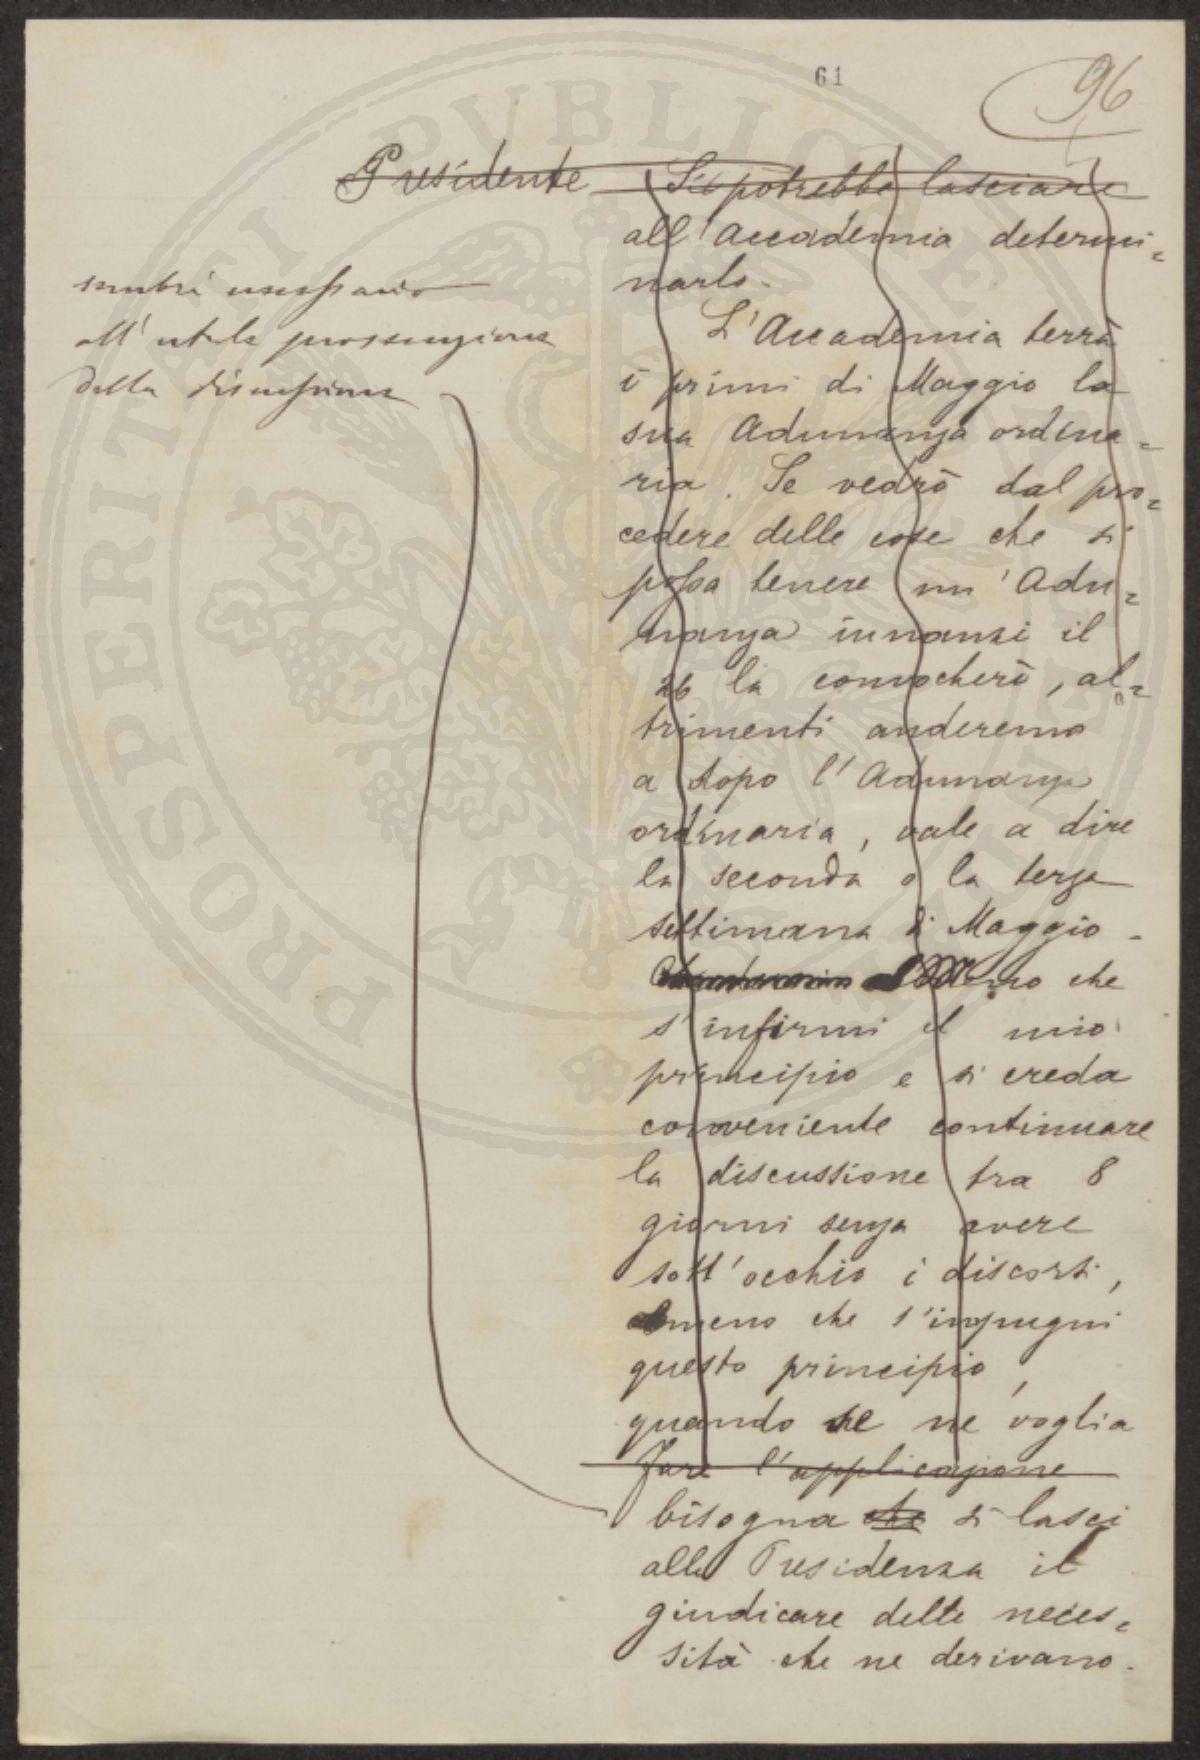 61
96
Presidente Si potrebbe lasciare
all'Accademia determi=
narlo.
L'Accademia terrà
i primi di Maggio la
sua Adunanza ordina=
ria. Se vedrò dal pro=
cedere delle cose che si
possa tenere un'Adu=
nanza innanzi il
26 la convocherò, al=
trimenti anderemo
a dopo l'Adunanza
ordinaria, vale a dire
la seconda o la terza
settimana di Maggio.
meno che
s'infirmi il mio
principio e si creda
conveniente continuare
la discussione tra 8
giorni senza avere
sott'occhio i discorsi,
ameno che s'impugni
questo principio,
quando se ne voglia
fare l'applicazione
bisogna che si lasci
alla Presidenza il
giudicare delle neces=
sità che ne derivano.
sembri necessario
all'utile prosecuzione
della discussione
PROSPERITATI PUBLICAE